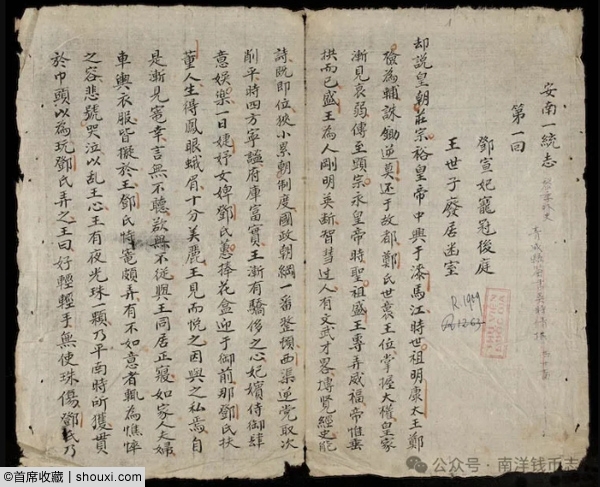 安南一統志
第一回
鄧宣妃寵冠後庭
王世子廢居幽室
R.1949
却說皇朝莊宗裕皇帝中興于漆馬江時世祖明康太王鄭
檢為輔誅鋤逆莫还于故都鄭氏世袭王位掌握大權皇家
漸見衰弱傳至顕宗永皇帝時聖祖盛王專弄威福帝惟垂
拱而已盛王為人剛明英断智彗过人有文武才畧博覽經史能
詩既即位狹小累朝制度國政朝綱一番整頓西渠逆党取次
削平時四方寧謐府庫富實王漸有驕侈之心妃嬪侍御肆
意娛樂一日婕妤女婢鄧氏蕙捧花盒迎于御前那鄧氏扶
董人生得鳳眼蛾眉十分美麗王見而悅之因與之私焉自
是漸見寵幸言無不聽欲無不從與王同居正寢如家人夫婦
車輿衣服皆擬於王鄧氏恃寵頗弄有不如意者輒為憔悴
之容悲號哭泣以乱王心王有夜光珠一顆乃平南時所獲貫
於巾頭以為玩鄧氏弄之王曰好輕輕手無使珠傷鄧氏乃
@首席收藏 | shouxi.com
公众号 · 南洋钱币志